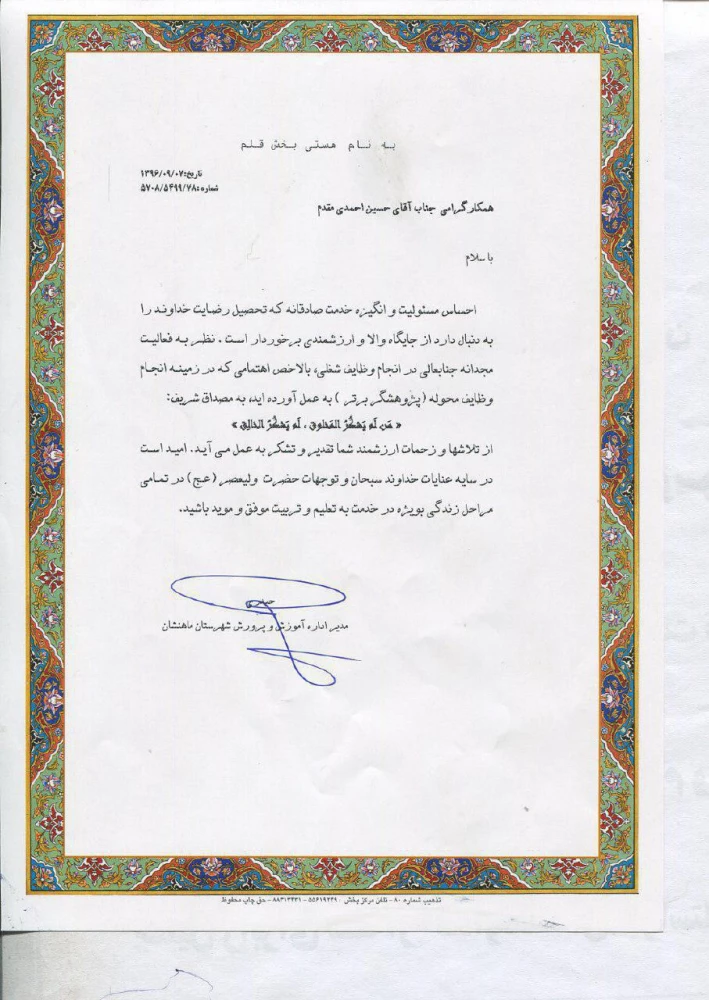 به نام هستی بخش قلم
تاریخ: ۱۳۹۶/۰۹/۰۷
شماره: ۵۷۰۸/۵۴۹۹/۷۸
همکار گرامی جناب آقای حسین احمدی مقدم
با سلام
احساس مسئولیت و انگیزه خدمت صادقانه که تحصیل رضایت خداوند را
به دنبال دارد از جایگاه والا و ارزشمندی برخوردار است . نظر به فعالیت
مجدانه جنابعالی در انجام وظایف شغلی، بالاخص اهتمامی که در زمینه انجام
وظایف محوله ( پژوهشگر برتر ) به عمل آورده اید، به مصداق شریف:
« مَن لَم یَشکُرُ المَخلوق ، لَم یَشکُرُ الخالِق »
از تلاشها و زحمات ارزشمند شما تقدیر و تشکر به عمل می آید. امید است
در سایه عنایات خداوند سبحان و توجهات حضرت ولیعصر (عج) در تمامی
مراحل زندگی بویژه در خدمت به تعلیم و تربیت موفق و موید باشید.
مدیر اداره آموزش و پرورش شهرستان ماهنشان
تذهیب شماره ۸۰ - تلفن مرکز پخش ۵۵۶۱۹۲۴۹ - ۸۸۳۱۳۴۳۱ - حق چاپ محفوظ